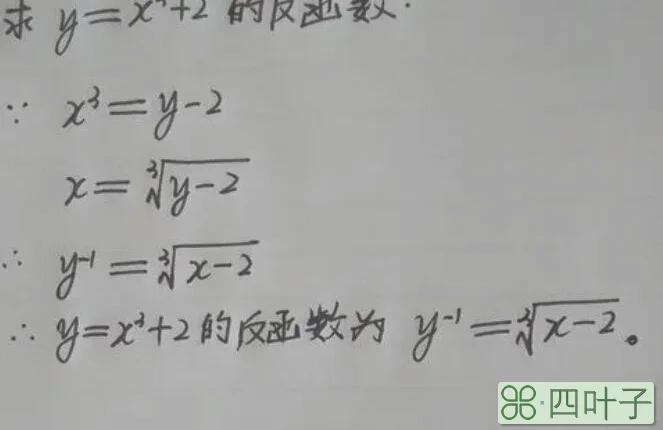 求 y=x³+2 的反函数.
∵ x³=y-2
x=∛(y-2)
∴ y⁻¹=∛(x-2)
∴ y=x³+2的反函数为 y⁻¹=∛(x-2)。
四叶子